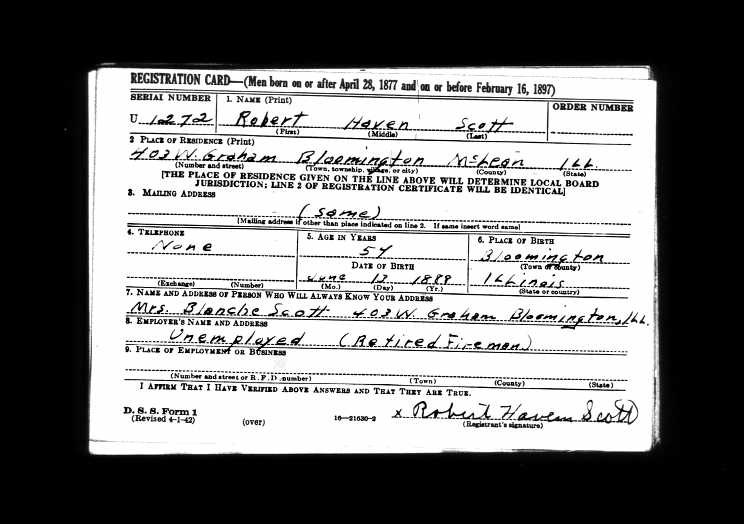 REGISTRATION CARD—(Men born on or after April 28, 1877 and on or before February 16, 1897)
SERIAL NUMBER 1. NAME (Print) ORDER NUMBER
U 1272 Robert Haven Scott
(First) (Middle) (Last)
2 PLACE OF RESIDENCE (Print)
403 W. Graham Bloomington McLean Ill.
(Number and street) (Town, township, village, or city) (County) (State)
[THE PLACE OF RESIDENCE GIVEN ON THE LINE ABOVE WILL DETERMINE LOCAL BOARD
JURISDICTION; LINE 2 OF REGISTRATION CERTIFICATE WILL BE IDENTICAL]
3. MAILING ADDRESS
(same)
[Mailing address if other than place indicated on line 2. If same insert word same]
4. TELEPHONE 5. AGE IN YEARS 6. PLACE OF BIRTH
None 54 Bloomington
DATE OF BIRTH (Town or county)
June 13 1888 Illinois
(Exchange) (Number) (Mo.) (Day) (Yr.) (State or country)
7. NAME AND ADDRESS OF PERSON WHO WILL ALWAYS KNOW YOUR ADDRESS
Mrs. Blanche Scott 403 W. Graham Bloomington, Ill.
8. EMPLOYER'S NAME AND ADDRESS
Unemployed (Retired Fireman)
9. PLACE OF EMPLOYMENT OR BUSINESS
(Number and street or R. F. D. number) (Town) (County) (State)
I AFFIRM THAT I HAVE VERIFIED ABOVE ANSWERS AND THAT THEY ARE TRUE.
D. S. S. Form 1
(Revised 4-1-42) (over) 16—21630-2 x Robert Haven Scott
(Registrant's signature)